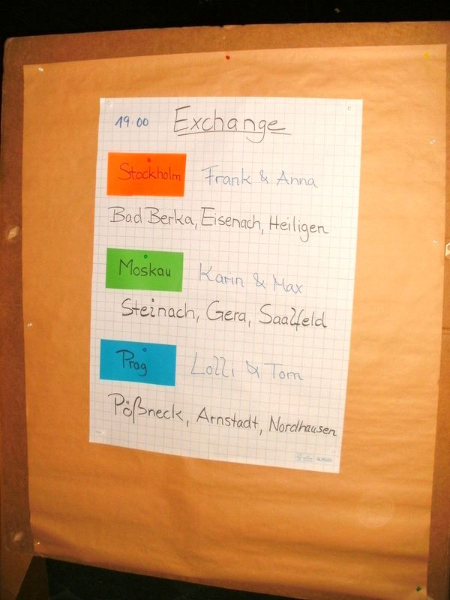 19.00 Exchange
Stockholm Frank & Anna
Bad Berka, Eisenach, Heiligen
Moskau Karin & Max
Steinach, Gera, Saalfeld
Prag Lolli & Tom
Pößneck, Arnstadt, Nordhausen